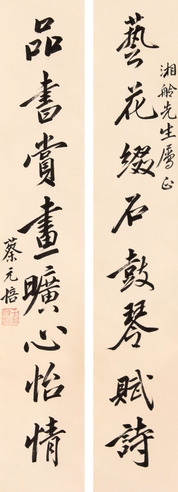 藝花綴石鼓琴賦詩
湘舲先生屬正
品書賞畫曠心怡情
蔡元培